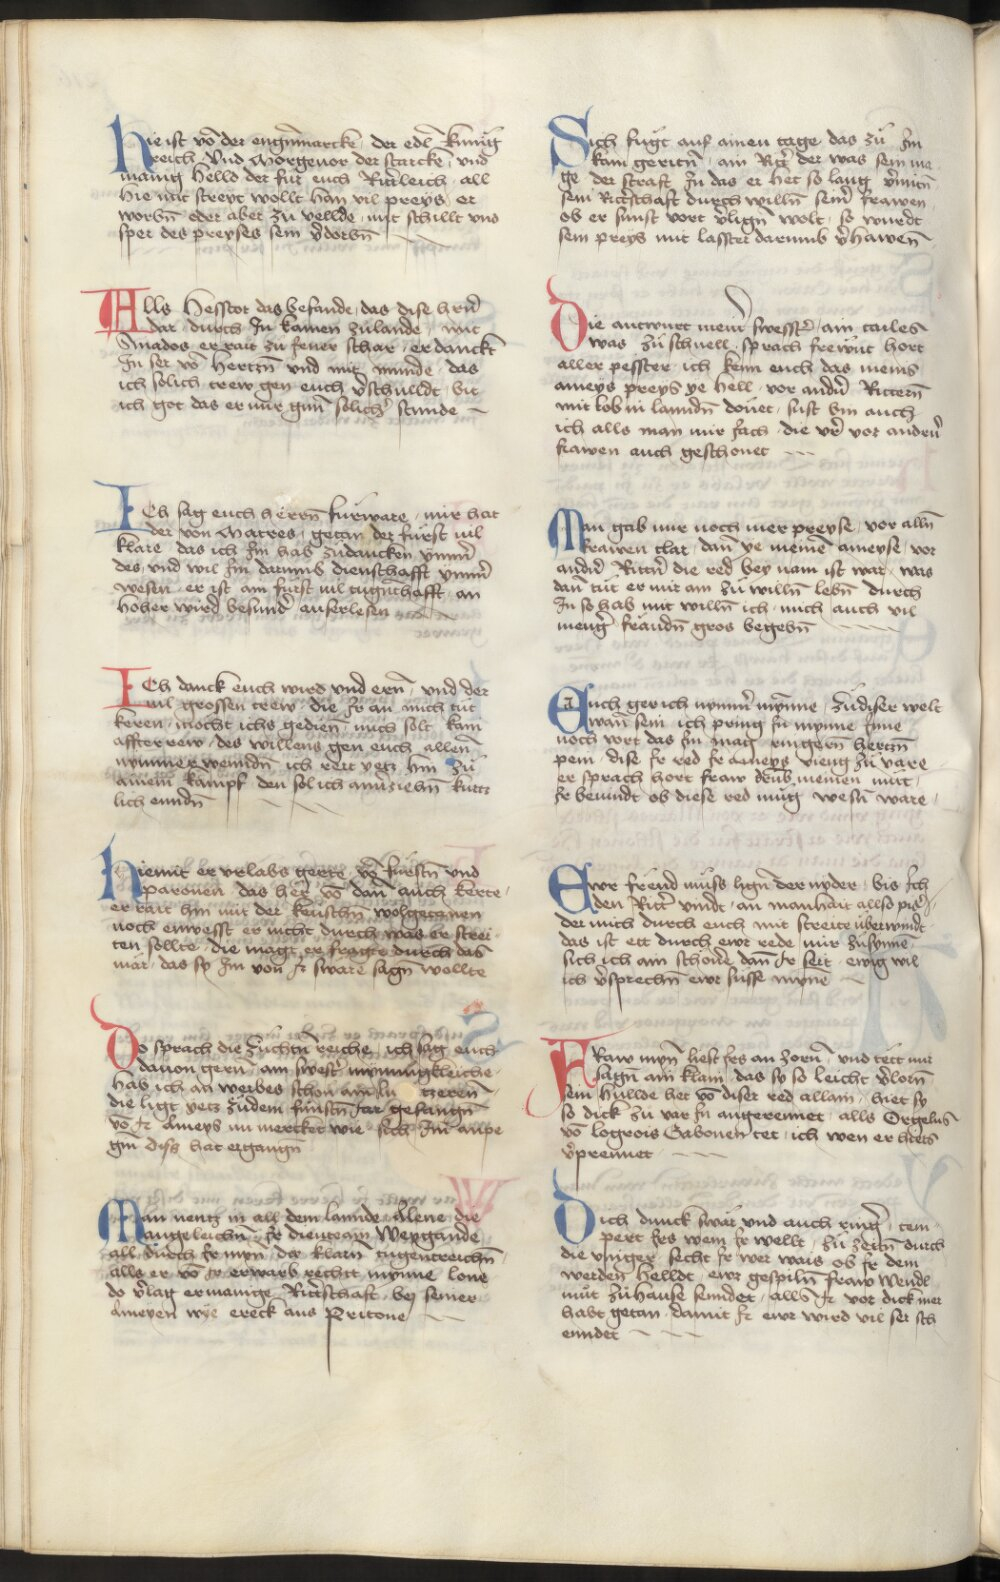 Hie ist võ der engñmarckẽ der edl Künig
reich Vnd Morgenor der starcke vnd
manig helld der für euch Ritt̃leich all
hie mit streyt wollt han vil preys er
worbñ oder aber zu vellde mit schillt vnd
sper des preyses sein v̉dorbñ
Alls Hesstor das befande das dise herñ
dar durch In kamen zulande mit
Amados er rait zu fener schar er danckt
In ser võ hertzñ vnd mit munde das
ich solich trew gen euch v̉schulldt bit
ich got das er mir gunñ solich̉ stunde
Ich sag euch herrñ fürware mir hat
der von Matres getan der fürst vil
klare das ich Im hab zudancken ymm̉
des vnd wil Im darumb dienschafft ymm̉
wesen er ist ain fürst vil tugnthafft an
hoher wird besund̉ auserlesen
Ich danck euch wird vnd ern̉ vnd der
vil grossen trew die Ir an mich tut
keren mocht ichs gedien̉ mich solt kain
affterrew des willens gen euch allen
nymmer wenndñ ich reit yetz hin zu
ainem kampf den sol ich anuziehñ kurtz
lich enndñ
Hiemit er vrlabs gerte võ fürstñ vnd
paronen das her võ dañ auch kerte
er rait hin mit der keuschñ wolgetanen
noch enwesst er nicht durch was er strei
ten sollte die magt er fragte durch das
mär das sy Im von Ir sware sagñ wollte
Do sprach die zuchtñ reiche ich sag euch
dauon gern̉ ain swest̉ mynnigkleiche
hab ich an weibes schon ain lu tzeren
die ligt yetz zudem fünftñ Jar gefangñ
võ Ir ameys nu mercket wie sich Im anpe
gin diss hat ergangñ
Man nentz in all dem lannde Alene die
angeleichñ Ir dienteain Weygande
all durch Ir myñ der klarñ tugentreichñ
alls er võ Ir erwarb rechtt mynne lone
do v̉lag er manige Ritt̉schaft bej seiner
ameyen wye ereck aus Pritone
Sich fügt auf ainen tage das zu Im
kam geritñ ain Ritt̉ der was sein ma
ge der straft In das er het so lang v̉mitñ
sein Ritt̉schaft durch willñ sein̉ frawen
ob er sunst vort v̉ligñ wolt so wurdt
sein preys mit lasster darumb v̉hawen
Die antwurt meiñ swesst̉ ain tailes
was zu schnell sprach frewnt hort
aller pesster ich kenn euch das meins
ameys preys ye hell vor andñ Rittern
mit lob in lanndñ donet sust bin auch
ich alls man mir Iach die vr̉ vor anderñ
frawen auch geschonet
Man gab mir noch mer preyse vor allñ
frawen clar dañ ye meinem ameyse vor
andñ Rittñ die red bey nam ist war was
dañ tut er mir am zu willñ lebñ durch
In so hab mit willñ ich mich auch vil
menig̉ freudñ gros begebñ
Auch ger ich nymm̉ mynne zudiser welt
wañ sein ich pring In mynne Inne
noch vort das Im mag ringern̉ hertzñ
pein dise Ir red Ir ameys vieng zu vare
er sprach hort fraw drũb meinen müt
Ir bevindt ob diese red müg wesñ ware
Ewr freud muss lign̉ der nyder bis Ich
den Ritt̉ vindt an manhait allso pid̉
der mich durch euch mit streite überwindt
das ist ett durch ewr rede mir zusynne
sich ich ain schoner̉ dañ Ir seit ewig wil
ich v̉sprechñ ewr susse mynne
Fraw myñ liest Irs an zorñ vnd tett mir
sagñ ain klain das sy so leicht v̉lorñ
sein hullde het võ diser red allain hiet sy
so dick zu var In angerennet alls Orgelus
võ Logrois Gabonen tet ich wen er hiets
v̉prennet
Dich dunck swär vnd auch ring̉ tem
pert Irs wem Ir wellt zu zeitñ durch
die yniger secht Ir wer wais ob Ir dem
werden helldt ewr gespilñ fraw Wendl
mut zuhause senndet alls Ir vor dick mer
habt getan damit Ir ewr wird vil ser sch
enndet